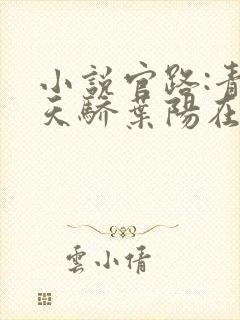 小説官路:青
天驕葉陽在
雲小倩